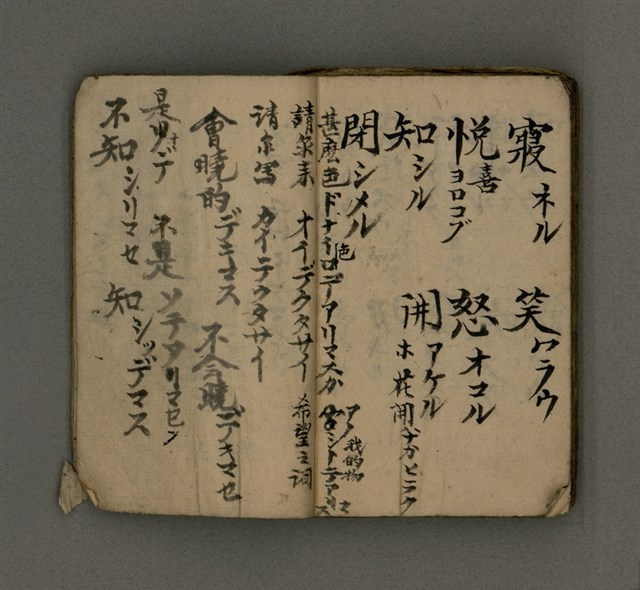 寢 ネル 笑 ワラウ
悦喜 ヨロコブ 怒 オコル
知 シル 開 アケル
ホ 花開 ヒラク
閉 シメル
甚麼色 ドナイロデアリマスカ
我的物
請來来 オイデクタサイ 希望之詞
請尔寫 カイテクタサイ
會曉的 デキマス 不会曉 デキマセ
是 不是 ソデアリマセン
不知 シリマセ 知 シッデマス